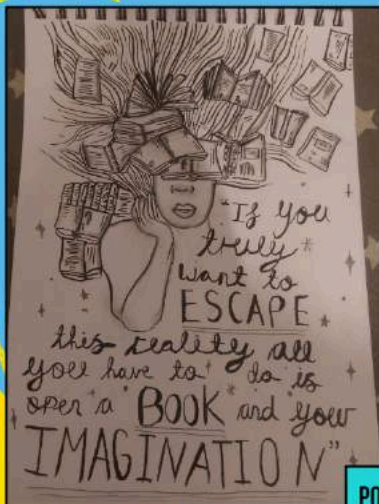 "If you
truly
want to
ESCAPE
this reality all
you have to do is
open a BOOK and your
IMAGINATION"
PO